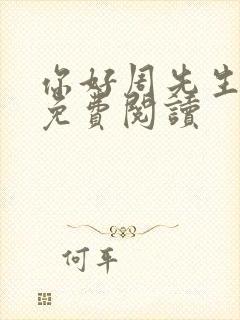 你好周先生
免費閱讀
何平